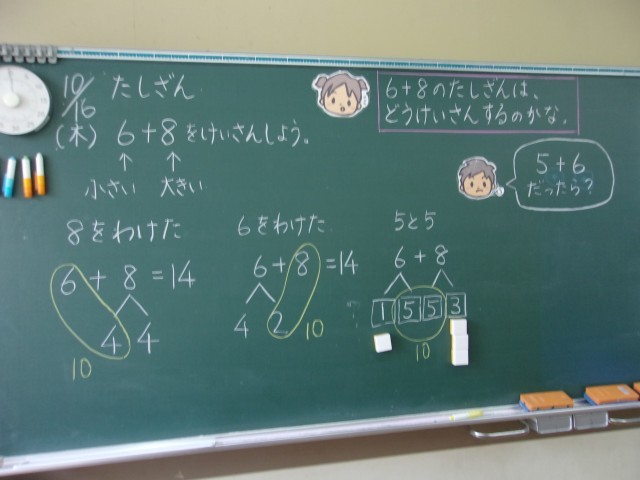 10/16 たしざん
(木) 6+8をけいさんしよう。
↑ ↑
小さい 大きい
6+8のたしざんは、
どうけいさんするのかな。
5+6
だったら?
8をわけた
6+8=14
4 4
10
6をわけた
6+8=14
4 2
10
5と5
6+8
1 5 5 3
10